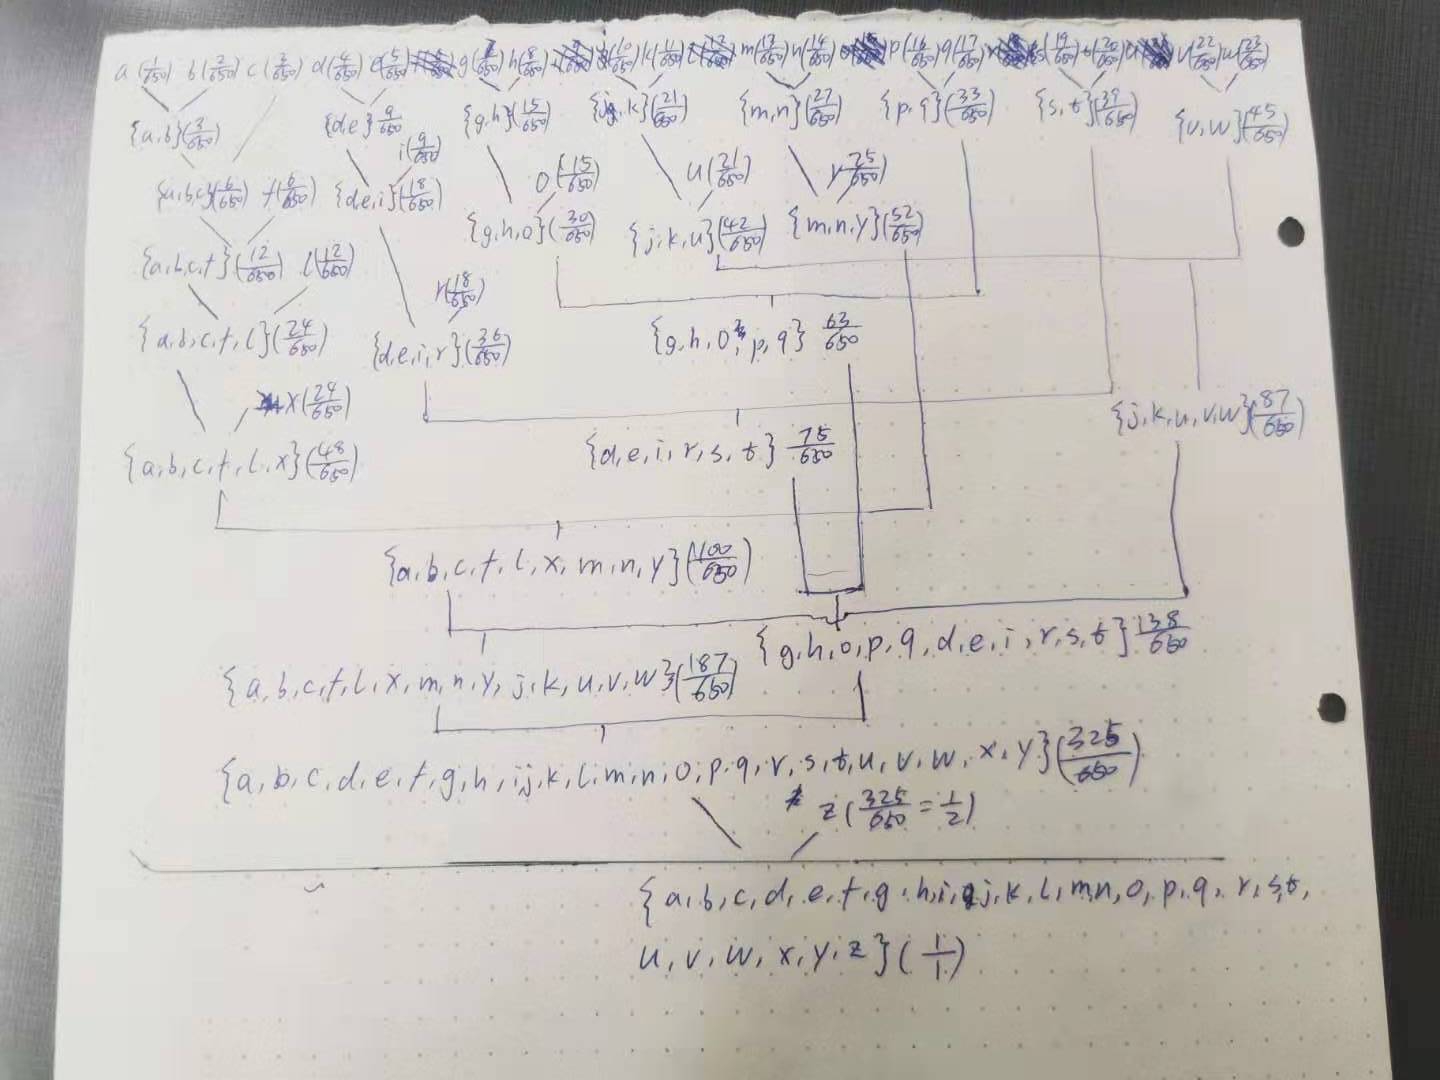 a (1/650) b (2/650) c (3/650) d (4/650) e (5/650) g (7/650) h (8/650) j (10/650) k (11/650) m (13/650) n (14/650) p (16/650) q (17/650) s (19/650) t (20/650) v (22/650) w (23/650)
{a,b} (3/650) {d,e} 9/650 {g,h} (15/650) {j,k} (21/650) {m,n} (27/650) {p,q} (33/650) {s,t} (39/650) {v,w} (45/650)
i (9/650)
{a,b,c} (6/650) f (6/650) {d,e,i} (18/650) o (15/650) u (21/650) y 25/650
{g,h,o} (30/650) {j,k,u} (42/650) {m,n,y} (52/650)
{a,b,c,f} (12/650) l (12/650)
r (18/650)
{a,b,c,f,l} (24/650) {d,e,i,r} (36/650) {g,h,o,p,q} 63/650
x (24/650) {j,k,u,v,w} (87/650)
{a,b,c,f,l,x} (48/650) {d,e,i,r,s,t} 75/650
{a,b,c,f,l,x,m,n,y} (100/650)
{g,h,o,p,q,d,e,i,r,s,t} 138/650
{a,b,c,f,l,x,m,n,y,j,k,u,v,w} (187/650)
{a,b,c,d,e,f,g,h,i,j,k,l,m,n,o,p,q,r,s,t,u,v,w,x,y} (325/650)
z (325/650 = 1/2)
{a,b,c,d,e,f,g,h,i,j,k,l,m,n,o,p,q,r,s,t,
u,v,w,x,y,z} (1/1)